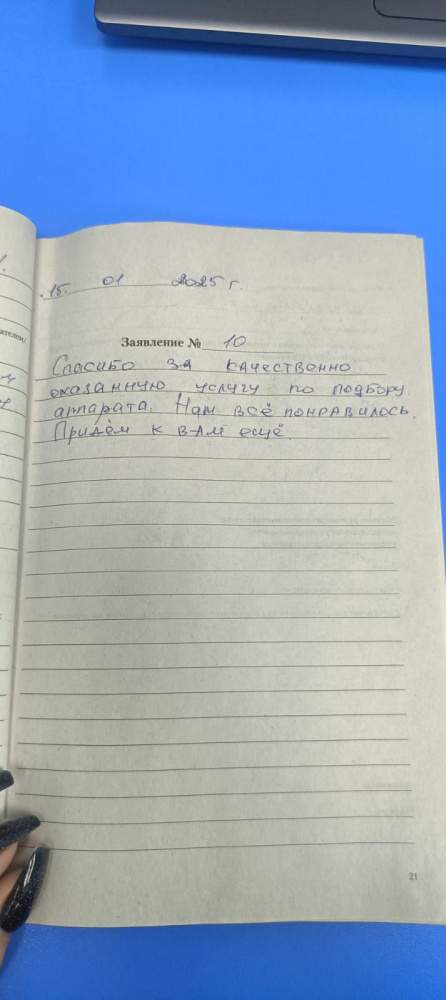 15. 01 2025 г.
Заявление № 10
Спасибо за качественно
оказанную услугу по подбору
аппарата. Нам всё понравилось.
Придём к вам ещё.
21